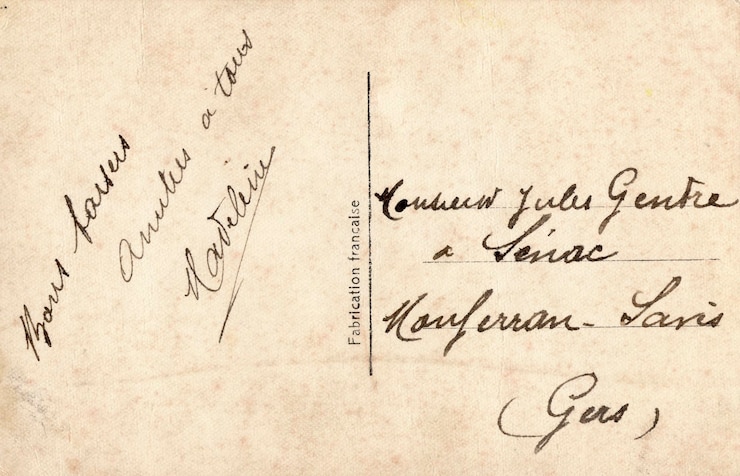 Bons baisers
amities à tous
Madeleine
Fabrication francaise
Monsieur Jules Gendre
a Sénac
Monferran - Savis
(Gers)